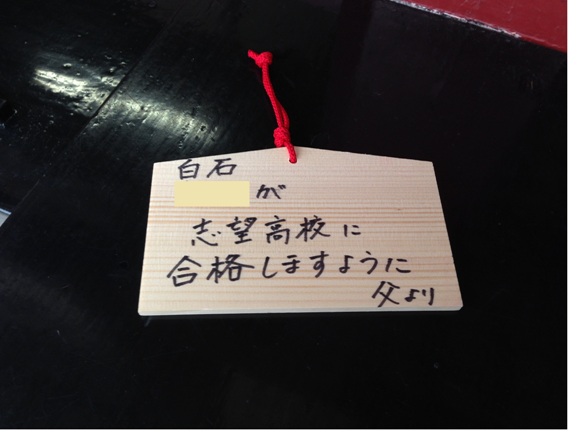 白石
が
志望高校に
合格しますように
父より